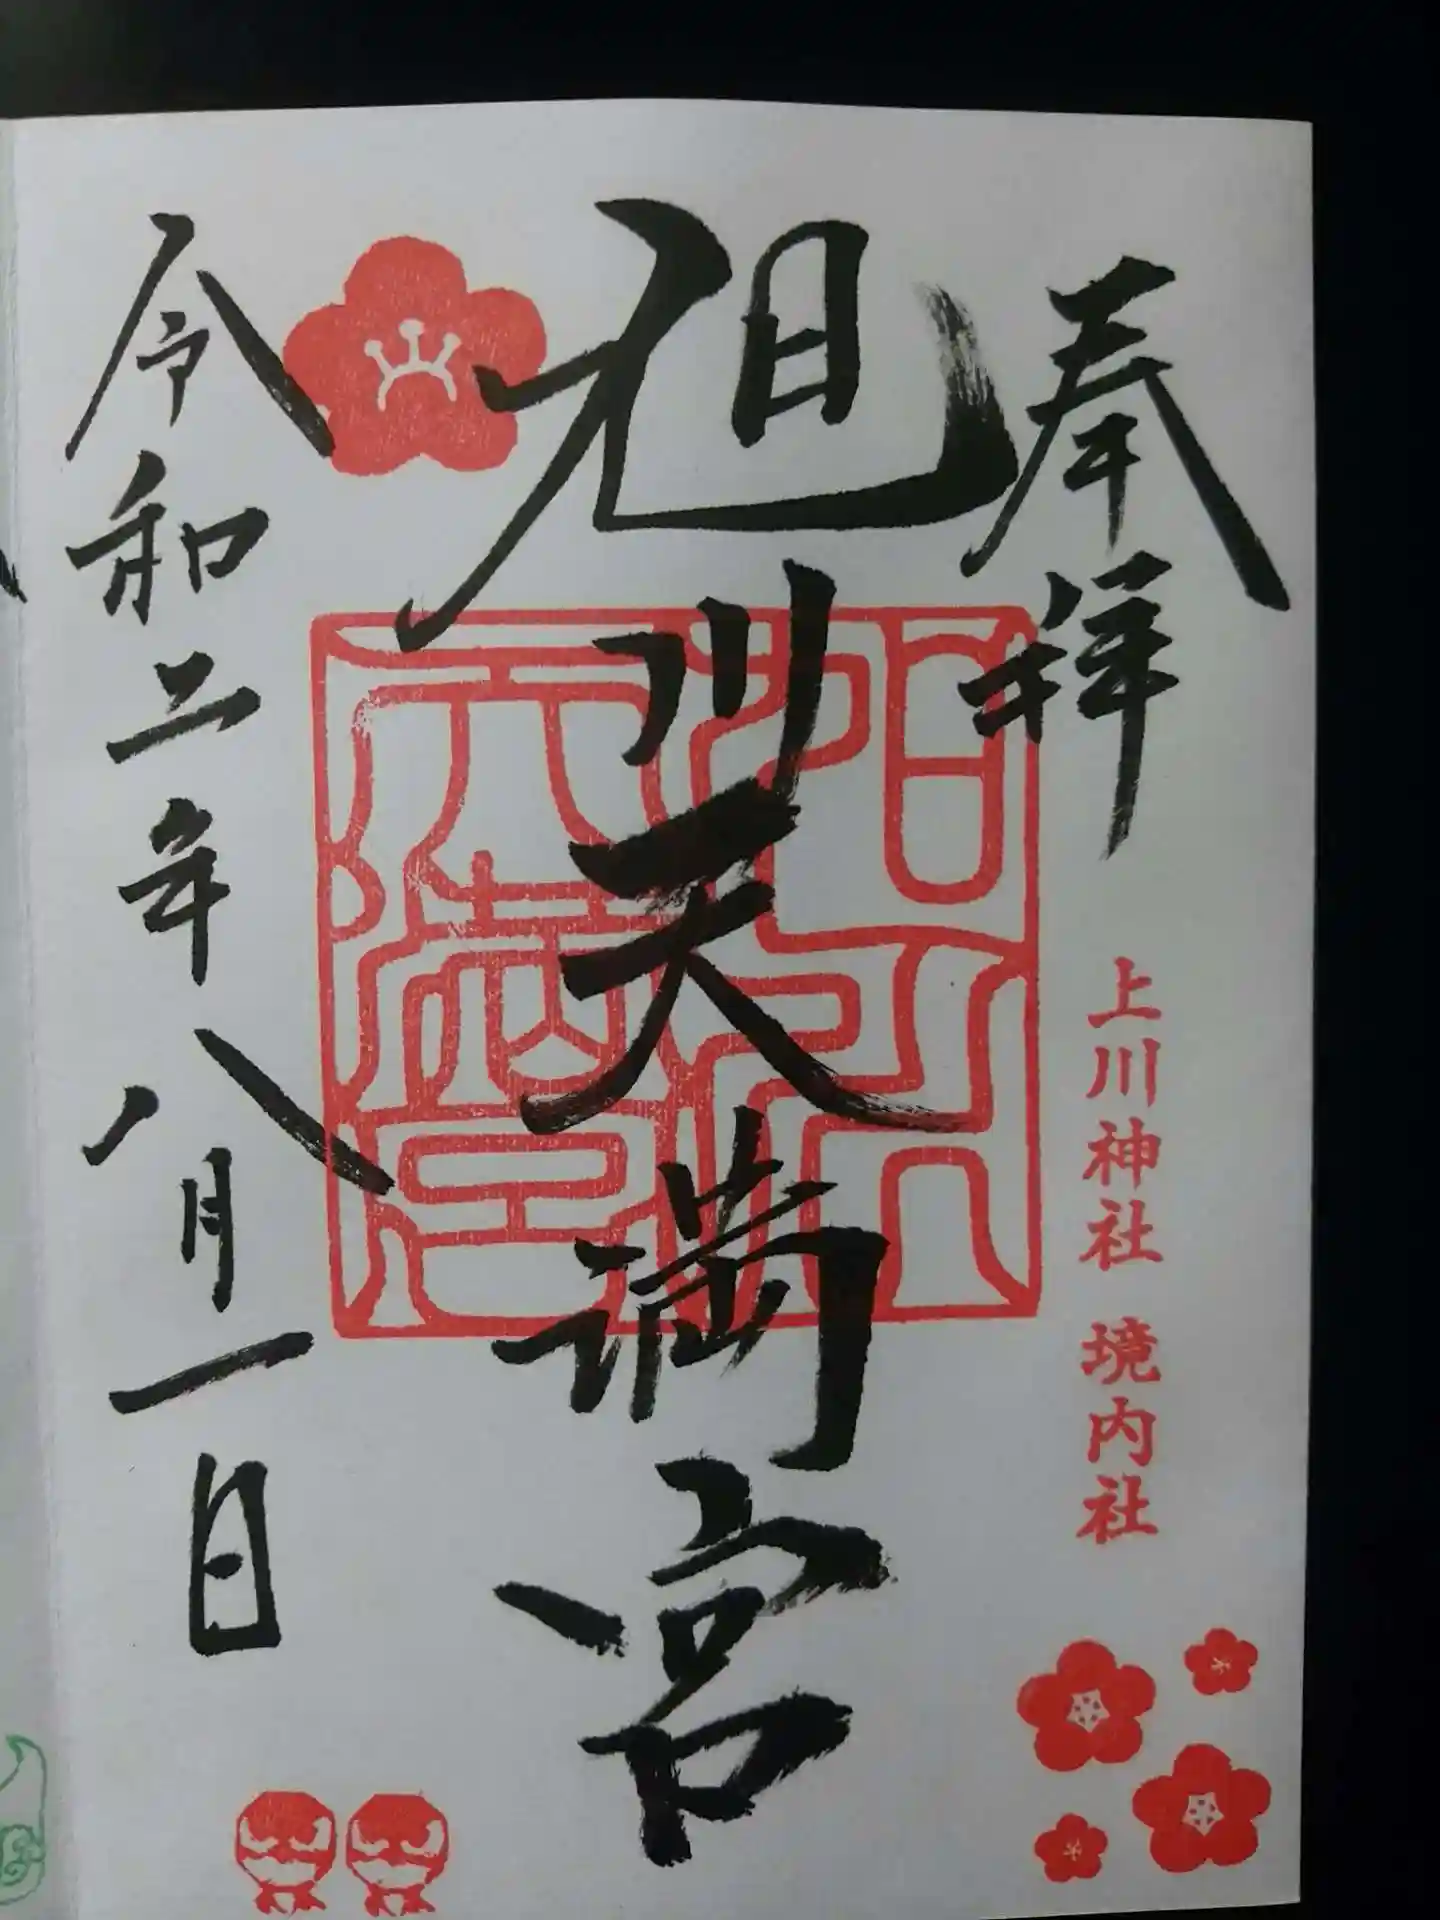 奉拝
上川神社 境内社
旭川天満宮
旭川天満宮
令和二年八月一日